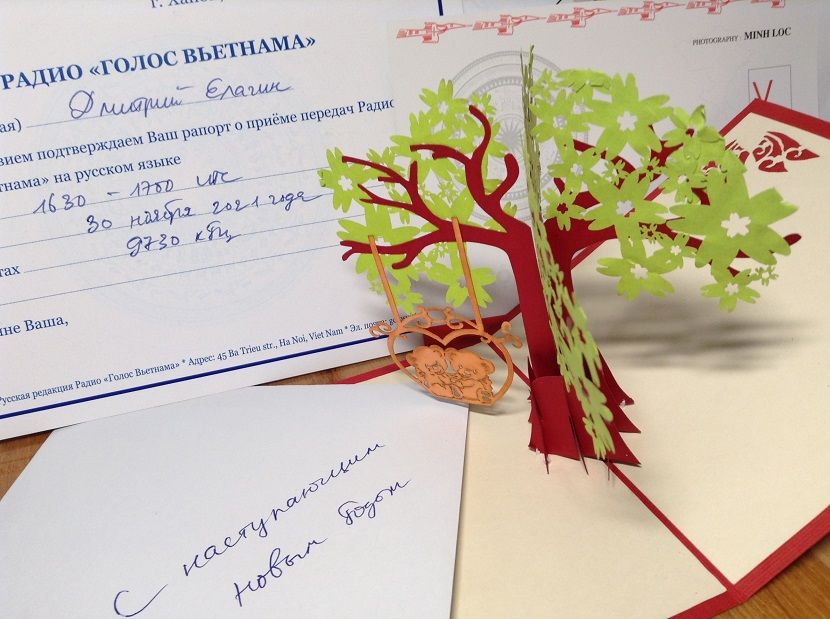 г. Хано
РАДИО «ГОЛОС ВЬЕТНАМА»
ая) Дмитрий Елагин
вием подтверждаем Ваш рапорт о приёме передач Радио
тнама» на русском языке
1630 – 1700 UTC
30 ноября 2021 года
тах 9730 кГц
не Ваша,
Русская редакция Радио «Голос Вьетнама» * Адрес: 45 Ba Trieu str., Ha Noi, Viet Nam * Эл. почта:
PHOTOGRAPHY : MINH LOC
С наступающим
новым годом